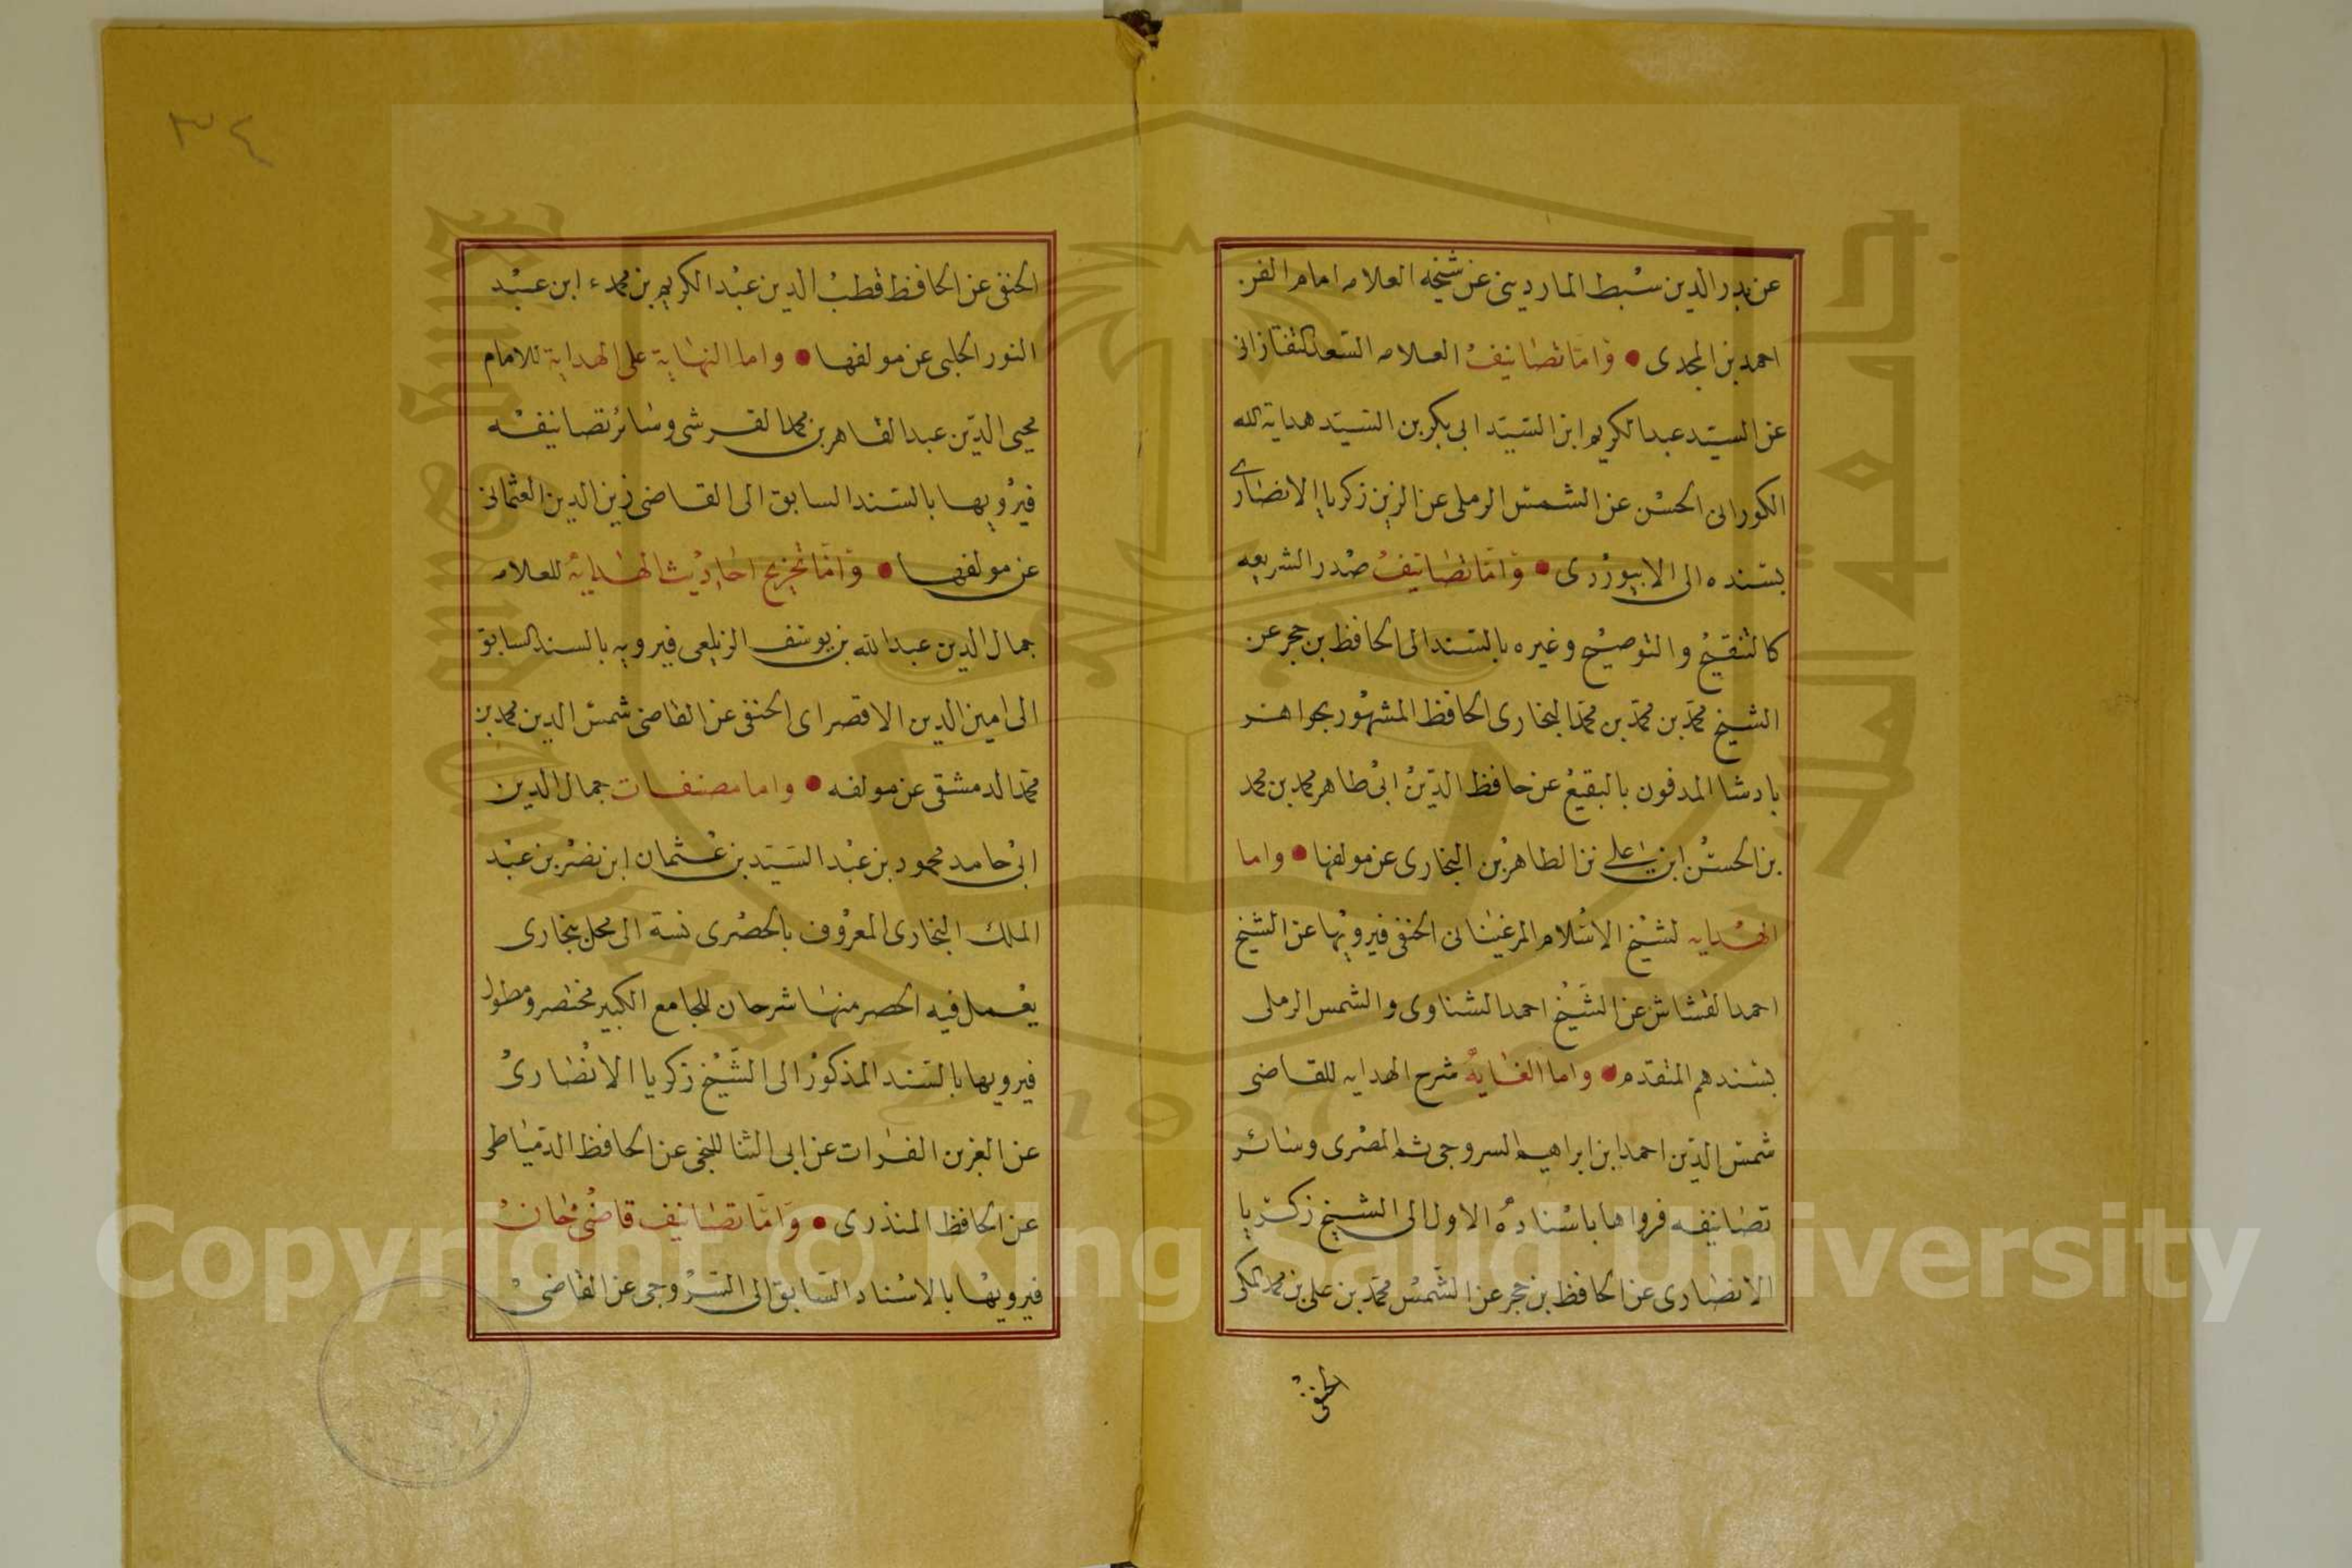 عن بدر الدين سبط المارديني عن شيخه العلامه امام الفن
احمد بن المجدي • واما تصانيف العلامه السعد التفتازاني
عن السيد عبد الكريم ابن السيد ابي بكر بن السيد هداية الله
الكوراني الحسن عن الشمس الرملي عن الزين زكريا الانصاري
بسنده الى الابيوردى • واما تصانيف صدر الشريعه
كالتنقيح والتوضيح وغيره بالسند الى الحافظ بن حجر عن
الشيخ محمد بن محمد بن محمد البخارى الحافظ المشهور بجواهر
بادشا المدفون بالبقيع عن حافظ الدين ابى طاهر محمد بن محمد
بن الحسن ابن على بن الطاهر بن البخارى عن مولفها • واما
الهدايه لشيخ الاسلام المرغينانى الحنفى فيرويها عن الشيخ
احمد القشاش عن الشيخ احمد الشناوى والشمس الرملى
بسندهم المتقدم • واما الغاية شرح الهدايه للقاضى
شمس الدين احمد ابن ابراهيم السروجى ثم المصرى وسائر
تصانيفه فرواها باسناده الاول الى الشيخ زكريا
الانصارى عن الحافظ بن حجر عن الشمس محمد بن على بن محمد المكى
الحنفى
٣٤
الحنفى عن الحافظ قطب الدين عبد الكريم بن محمد ابن عبد
النور الحلبى عن مولفها • واما النهاية على الهداية للامام
محيى الدين عبد القاهر بن محمد القرشى وسائر تصانيفه
فيرويها بالسند السابق الى القاضى زين الدين العثمانى
عن مولفها • واما تخريج احاديث الهداية للعلامه
جمال الدين عبد الله بن يوسف الزيلعى فيرويه بالسند السابق
الى امين الدين الاقصراى الحنفى عن القاضى شمس الدين محمد بن
محمد الدمشقى عن مولفه • واما مصنفات جمال الدين
ابى حامد محمود بن عبد السيد بن عثمان ابن نصر بن عبد
الملك البخارى المعروف بالحصرى نسة الى محل ببخارى
يعمل فيه الحصر منها شرحان للجامع الكبير مختصر ومطول
فيرويها بالسند المذكور الى الشيخ زكريا الانصارى
عن العز بن الفرات عن ابى الثنا عن الحافظ الدمياطى
عن الحافظ المنذرى • واما تصانيف قاضى خان
فيرويها بالاسناد السابق الى السروجى عن القاضى
Copyright © King Saud University